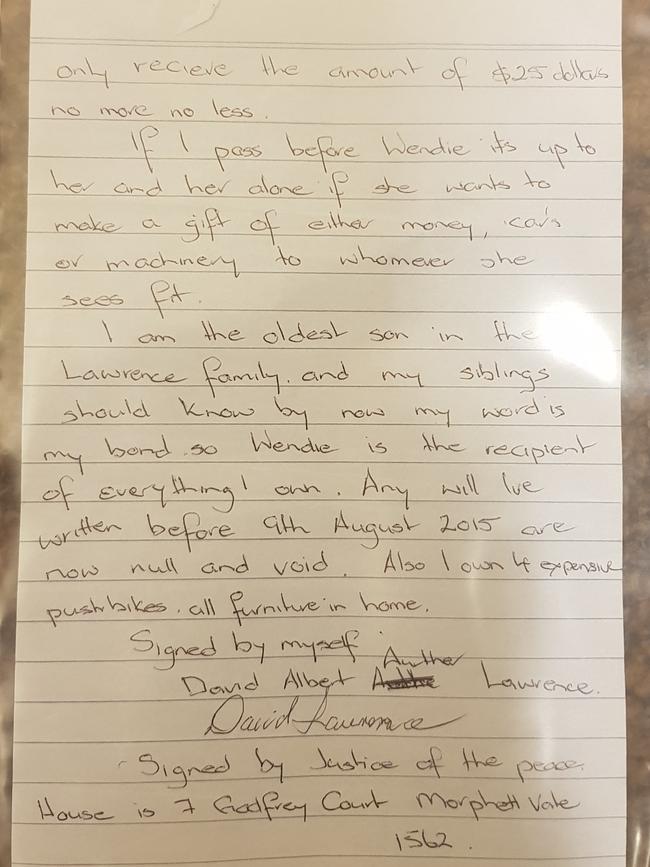 only recieve the amount of $25 dollars
no more no less.
If I pass before Wendie its up to
her and her alone if she wants to
make a gift of either money, cars
or machinery to whomever she
sees fit.
I am the oldest son in the
Lawrence family. and my siblings
should know by now my word is
my bond. so Wendie is the recipient
of everything I own. Any will Ive
written before 9th August 2015 are
now null and void. Also I own 4 expensive
pushbikes. all furniture in home.
Signed by myself.
David Albert Auther Lawrence.
David Lawrence
Signed by Justice of the peace.
House is 7 Godfrey Court Morphett Vale
1562.